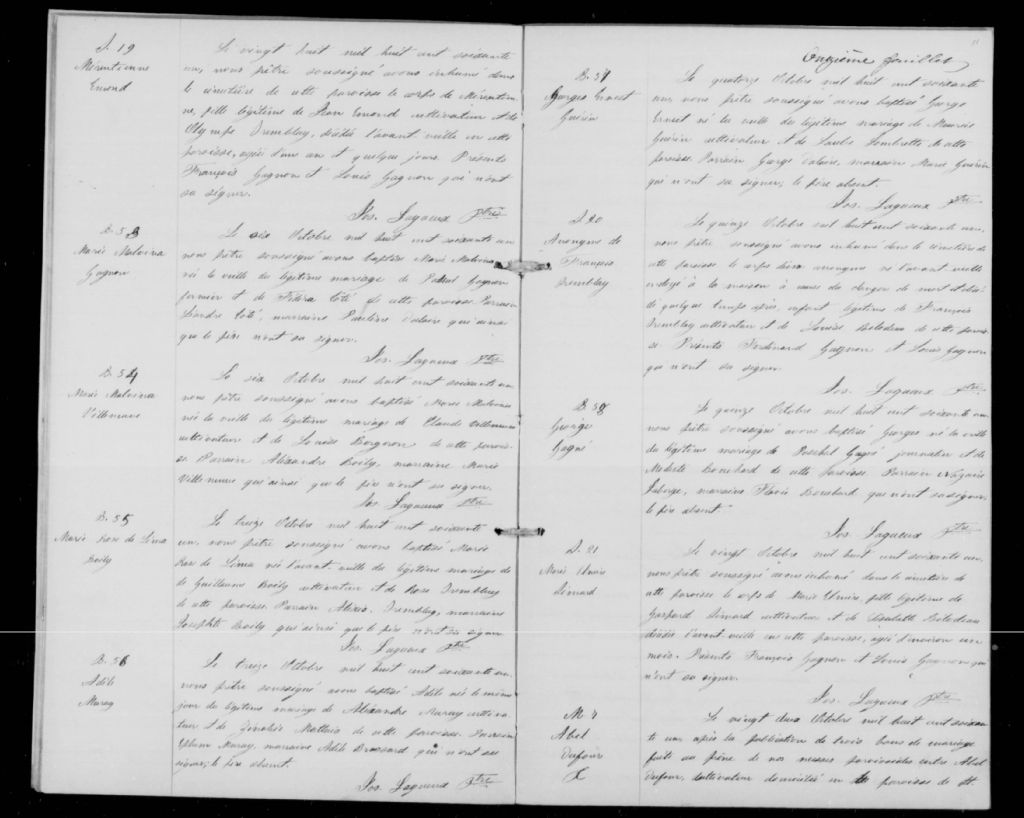 S. 19
Mérentienne
Emond
Le vingt huit mil huit cent soixante
un, nous prêtre soussigné avons inhumé dans
le cimetière de cette paroisse le corps de Mérentien
ne, fille légitime de Jean Emond cultivateur et de
Olympe Tremblay, décédée l'avant veille en cette
paroisse, agée d'un an et quelques jours. Présents
François Gagnon et Louis Gagnon qui n'ont
su signer.
Jos. Lagueux Ptre
B. 53
Marie Malvina
Gagnon
Le six Octobre mil huit cent soixante un
nous prêtre soussigné avons baptisé Marie Malvina
née la veille du légitime mariage de Gagnon
fermier et de Côté de cette paroisse. Parrain
Côté, marraine Pauline Dalaire qui ainsi
que le père n'ont su signer.
Jos. Lagueux Ptre
B. 54
Marie Malvina
Villeneuve
Le six Octobre mil huit cent soixante un
nous prêtre soussigné avons baptisé Marie Malvina
née la veille du légitime mariage de Claude Villeneuve
cultivateur et de Louise Bergeron de cette parois-
se. Parrain Alexandre Boily, marraine Marie
Villeneuve qui ainsi que le père n'ont su signer.
Jos. Lagueux Ptre
B. 55
Marie Rose de Lima
Boily
Le treize Octobre mil huit cent soixante
un, nous prêtre soussigné avons baptisé Marie
Rose de Lima née l'avant veille du légitime mariage de
de Guillaume Boily cultivateur et de Rose Tremblay
de cette paroisse. Parrain Alexis Tremblay, marraine
Boily qui ainsi que le père n'ont su signer
Jos. Lagueux Ptre
B. 56
Adèle
Muray
Le treize Octobre mil huit cent soixante un,
nous prêtre soussigné avons baptisé Adèle née le même
jour du légitime mariage de Alexandre Muray cultiva-
teur et de de cette paroisse. Parrain
Muray, marraine Adèle Brassard qui n'ont su
signer, le père absent.
Jos. Lagueux Ptre
11
Onzième feuillet
B. 57
Georges Ernest
Guérin
Le quatorze Octobre mil huit cent soixante
un, nous prêtre soussigné avons baptisé George
Ernest né la veille du légitime mariage de
Guérin cultivateur et de de cette
paroisse. Parrain George Dalaire, marraine Marie Guérin
qui n'ont su signer, le père absent.
Jos. Lagueux Ptre
S. 20
Anonyme de
François
Tremblay
Le quinze Octobre mil huit cent soixante un,
nous prêtre soussigné avons inhumé dans le cimetière de
cette paroisse le corps d'un anonyme né l'avant veille
ondoyé à la maison à cause du danger de mort et décé-
dé quelque temps après, enfant légitime de François
Tremblay cultivateur et de Louise Bilodeau de cette parois-
se. Présents Ferdinand Gagnon et Louis Gagnon
qui n'ont su signer.
Jos. Lagueux Ptre
B. 58
George
Gagné
Le quinze Octobre mil huit cent soixante un
nous prêtre soussigné avons baptisé Georges né la veille
du légitime mariage de Gagné journalier et de
Modeste Bouchard de cette paroisse. Parrain Nazaire
Laberge, marraine Flavie Bouchard qui n'ont su signer,
le père absent.
Jos. Lagueux Ptre
S. 21
Marie
Simard
Le vingt Octobre mil huit cent soixante un,
nous prêtre soussigné avons inhumé dans le cimetière de
cette paroisse le corps de Marie fille légitime de
Gaspard Simard cultivateur et de Bilodeau
décédée l'avant veille en cette paroisse, agée d'environ un
mois. Présents François Gagnon et Louis Gagnon qui
n'ont su signer.
Jos. Lagueux Ptre
M
Abel
Dufour
X
Le vingt deux Octobre mil huit cent soixan-
te un, après la publication de trois bans de mariage
faite au prône de nos messes paroissiales entre Abel
Dufour, cultivateur domicilié en la paroisse de St.